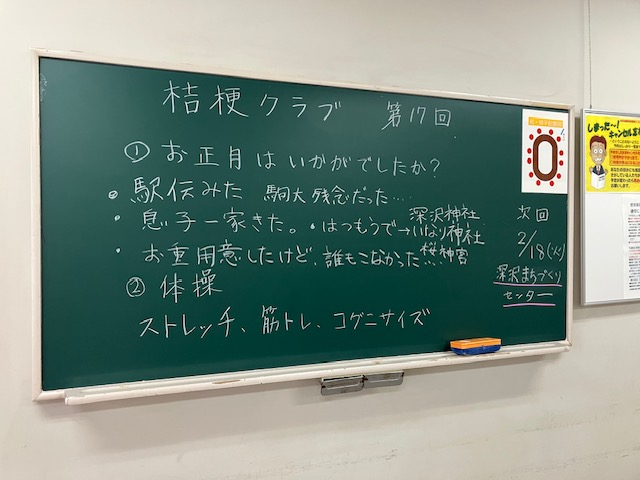 桔梗クラブ 第17回
① お正月はいかがでしたか?
• 駅伝みた 駒大残念だった....
• 息子一家きた。 • はつもうで→いなり神社
深沢神社
桜神宮
• お重用意したけど、誰もこなかった...
② 体操
ストレッチ、筋トレ、コグニサイズ
次回
2/18(火)
深沢まちづくり
センター
しまった〜!